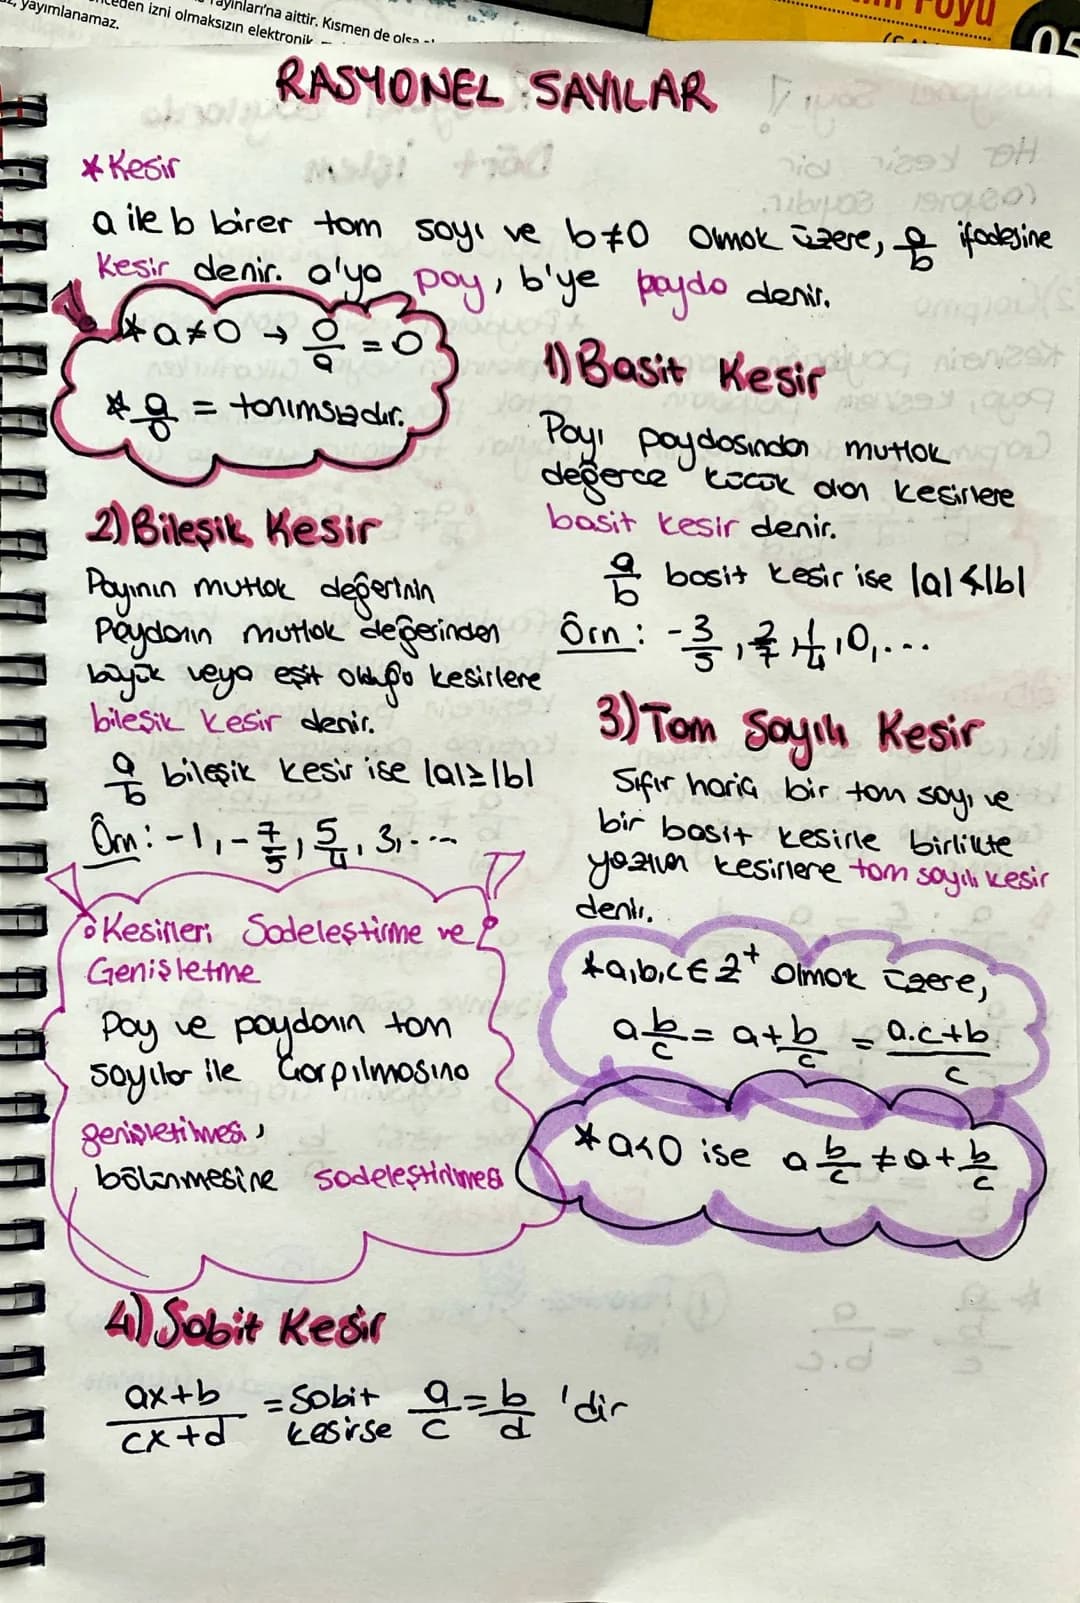 yayımlanamaz.
izni olmaksızın elektronik
Yayınları'na aittir. Kısmen de olsa
05
RASYONEL SAYILAR
* Kesir
a ile b birer tam sayı ve b≠0 olmak üzere, a/b ifadesine
kesir denir. a'ya pay, b'ye payda denir.
* a≠0 → 0/a = 0
* a/0 = tanımsızdır.
1) Basit Kesir
Payı paydasından mutlak
değerce küçük olan kesirlere
basit kesir denir.
a/b basit kesir ise |a|<|b|
Örn: -3/5, 2/7, 1/4, 0, ...
2) Bileşik Kesir
Payının mutlak değerinin
Paydanın mutlak değerinden
büyük veya eşit olduğu kesirlere
bileşik kesir denir.
a/b bileşik kesir ise |a|≥|b|
Örn: -1, -7/5, 5/4, 3, ...
3) Tam Sayılı Kesir
Sıfır hariç bir tam sayı ve
bir basit kesirle birlikte
yazılan kesirlere tam sayılı kesir
denir.
* a,b,c ∈ Z⁺ olmak üzere,
a b/c = a + b/c = a.c+b/c
* a<0 ise a b/c ≠ a + b/c
° Kesirleri Sadeleştirme ve
Genişletme
Pay ve paydanın tam
sayılar ile çarpılmasına
genişletilmesi,
bölünmesine sadeleştirilmesi
4) Sabit Kesir
ax+b/cx+d = Sabit kesirse a/c = b/d 'dir